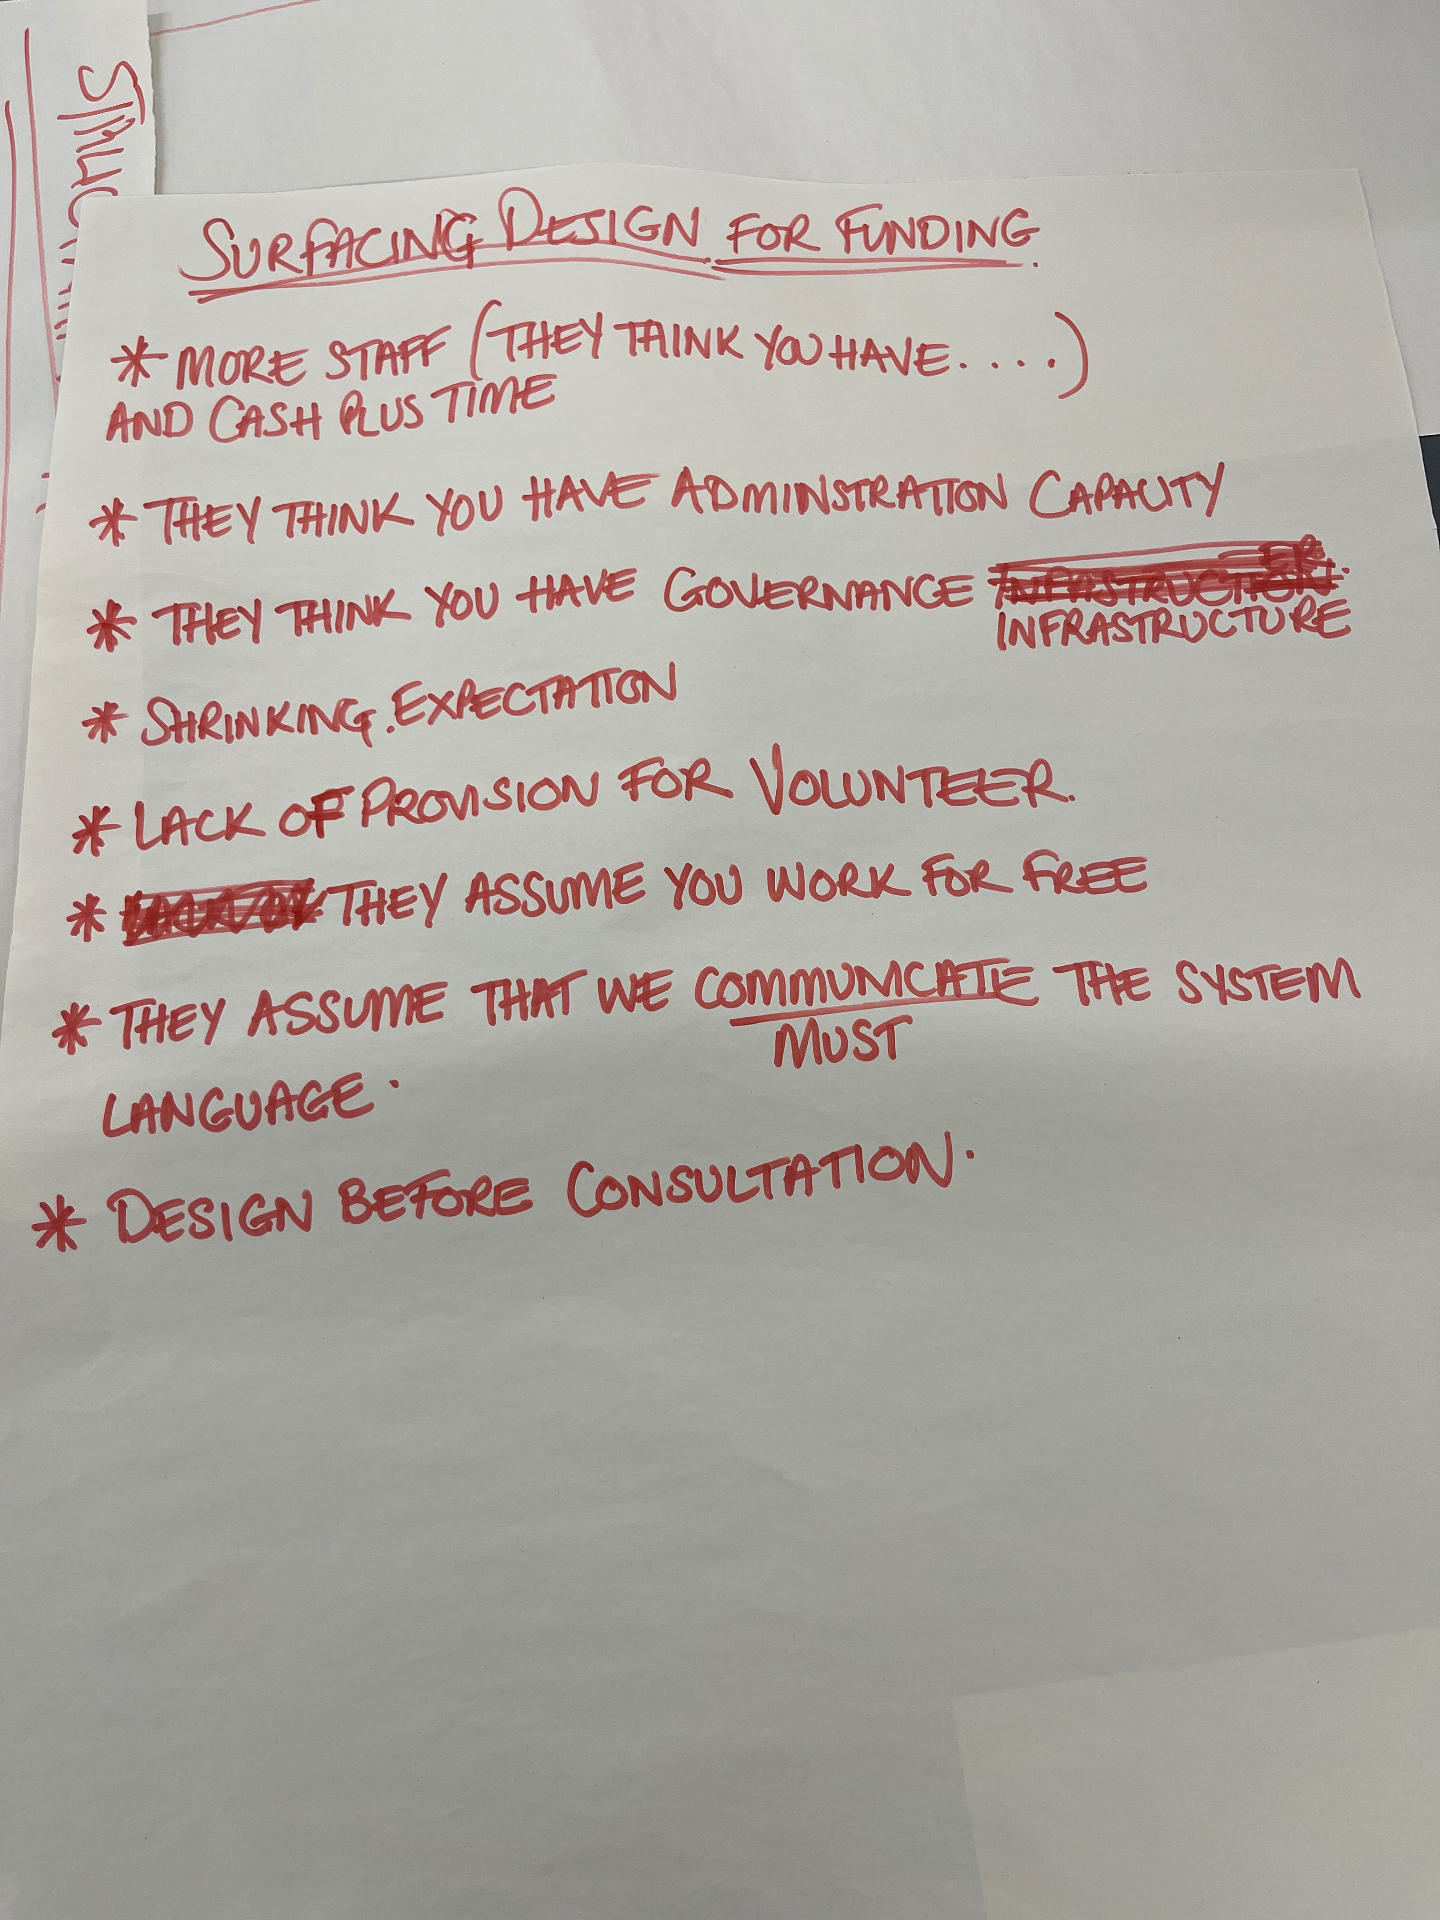 SURFACING DESIGN FOR FUNDING.
* MORE STAFF (THEY THINK YOU HAVE.....)
AND CASH PLUS TIME
* THEY THINK YOU HAVE ADMINSTRATION CAPACITY
* THEY THINK YOU HAVE GOVERNANCE
INFRASTRUCTURE
* SHRINKING. EXPECTATION
* LACK OF PROVISION FOR VOLUNTEER.
* THEY ASSUME YOU WORK FOR FREE
* THEY ASSUME THAT WE COMMUNICATE THE SYSTEM
MUST
LANGUAGE.
* DESIGN BEFORE CONSULTATION.